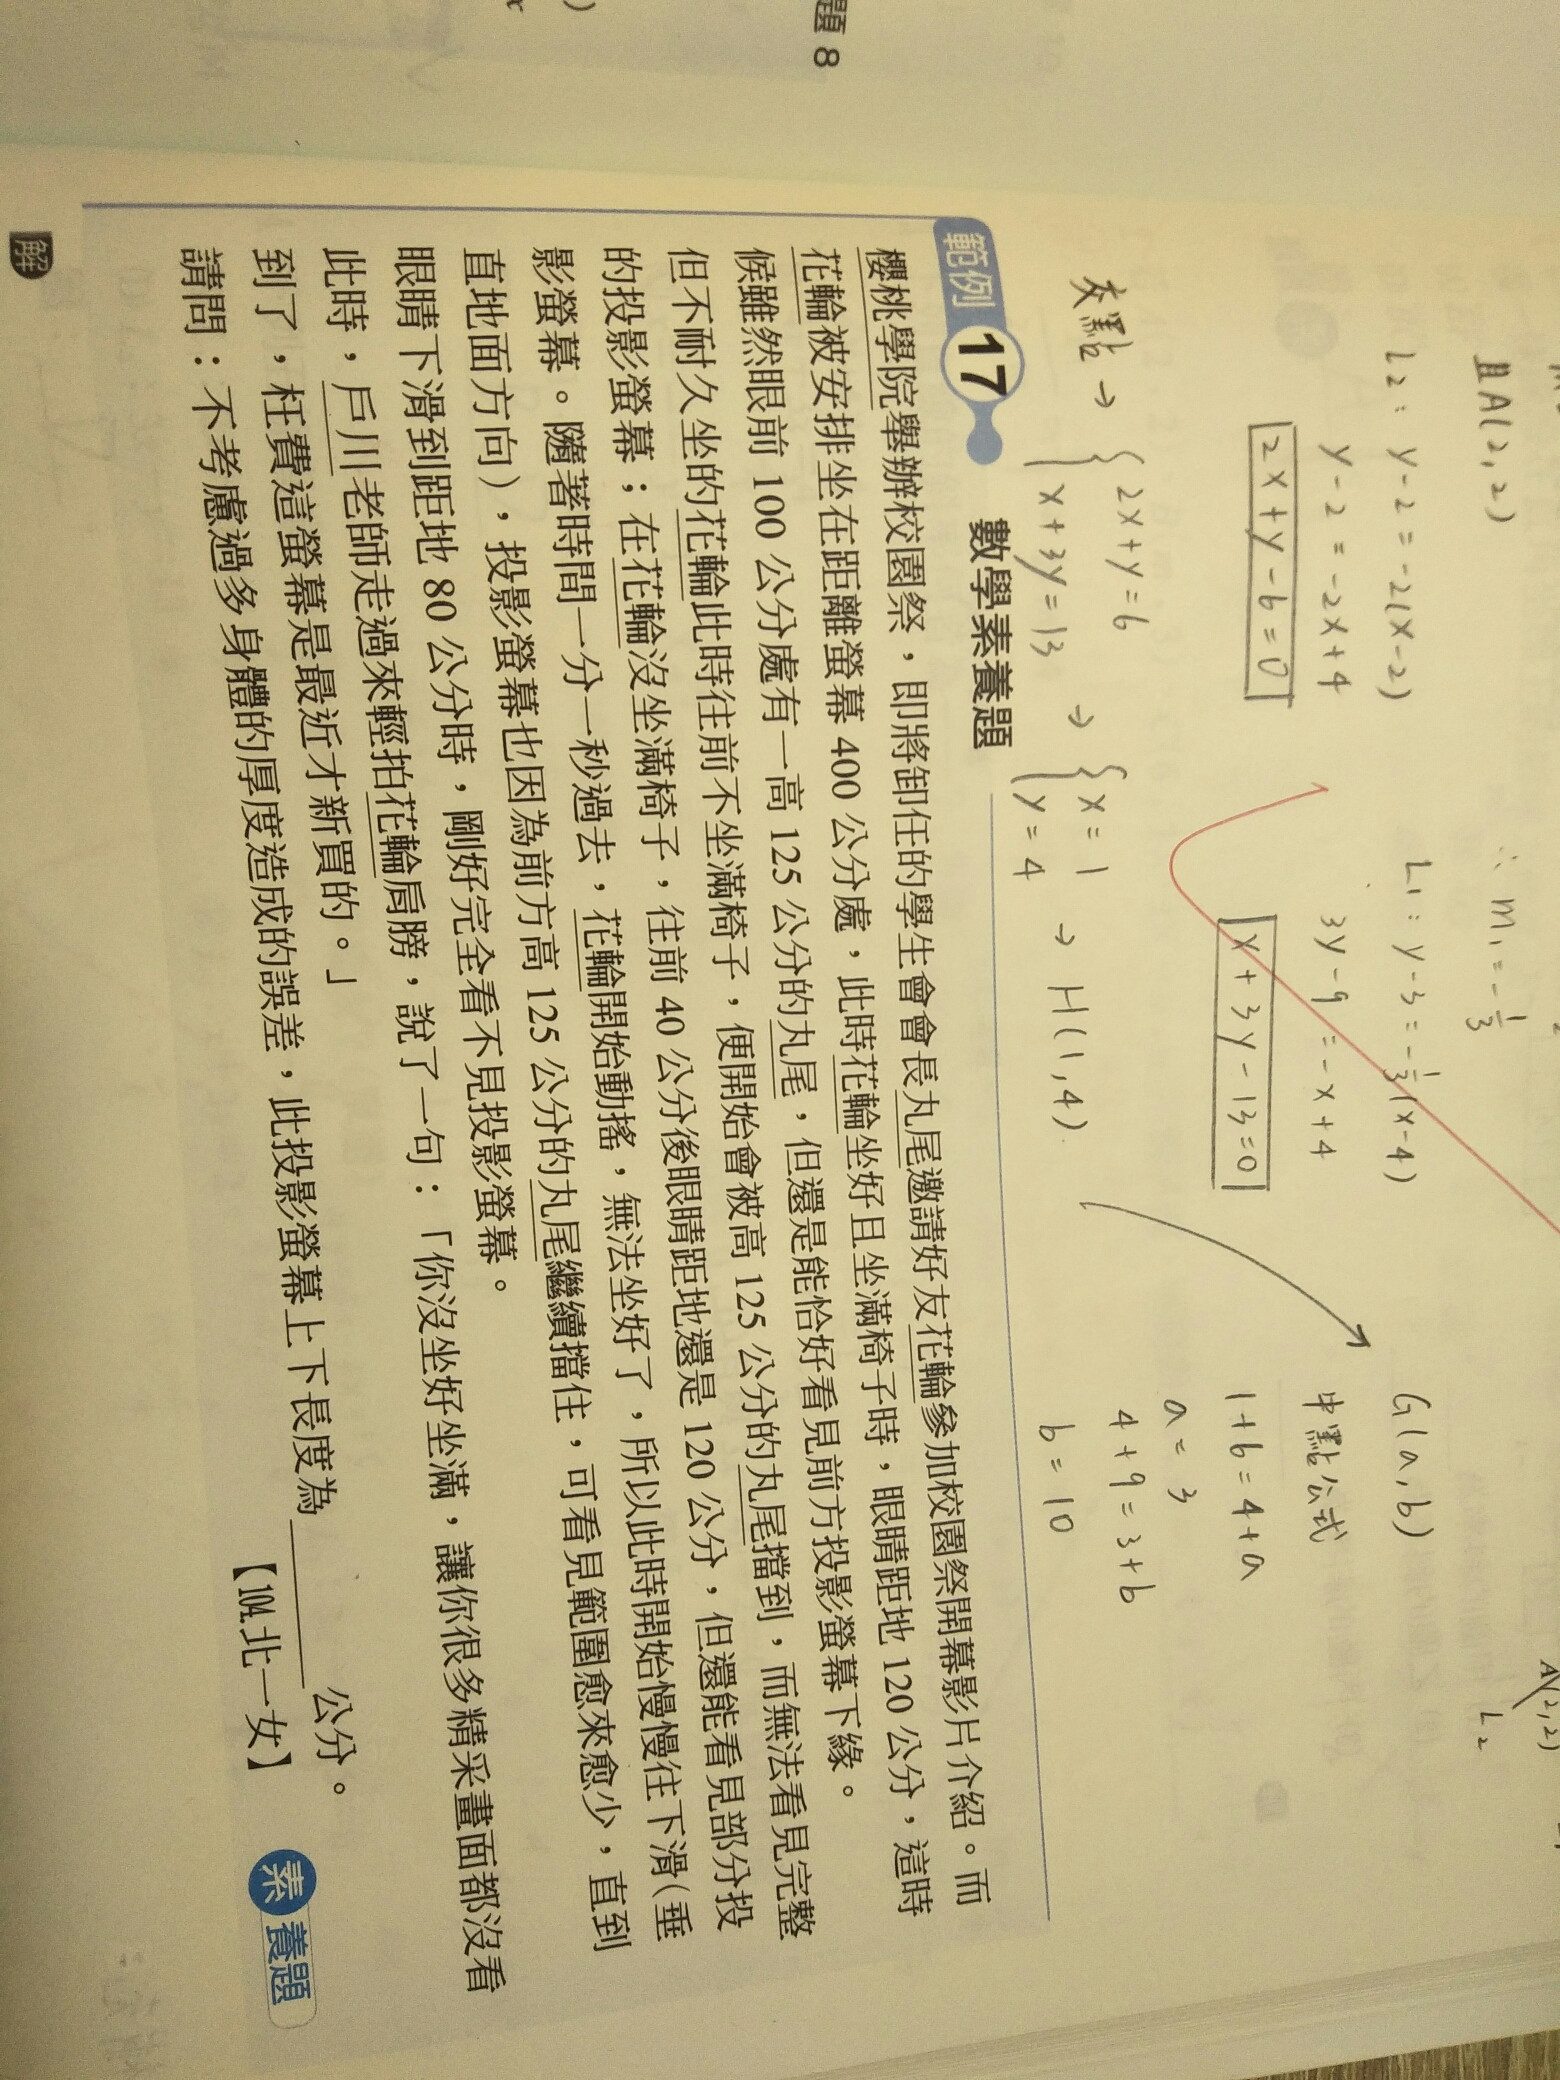 題 8
且A(2,2)
∴ m₁ = -1/3
A(2,2)
L₂
L₂: y-2=-2(x-2)
y-2=-2x+4
2x+y-6=0
L₁: y-3=-1/3(x-4)
3y-9=-x+4
x+3y-13=0
G(a,b)
中點公式
1+6=4+a
a=3
4+9=3+b
b=10
交點→ { 2x+y=6 → { x=1 → H(1,4)
x+3y=13 y=4
範例 17 數學素養題
櫻桃學院舉辦校園祭，即將卸任的學生會會長丸尾邀請好友花輪參加校園祭開幕影片介紹。而
花輪被安排坐在距離螢幕 400 公分處，此時花輪坐好且坐滿椅子時，眼睛距地 120 公分，這時
候雖然眼前 100 公分處有一高 125 公分的丸尾，但還是能恰好看見前方投影螢幕下緣。
但不耐久坐的花輪此時往前不坐滿椅子，便開始會被高 125 公分的丸尾擋到，而無法看見完整
的投影螢幕；在花輪沒坐滿椅子，往前 40 公分後眼睛距地還是 120 公分，但還能看見部分投
影螢幕。隨著時間一分一秒過去，花輪開始動搖，無法坐好了，所以此時開始慢慢往下滑(垂
直地面方向)，投影螢幕也因為前方高 125 公分的丸尾繼續擋住，可看見範圍愈來愈少，直到
眼睛下滑到距地 80 公分時，剛好完全看不見投影螢幕。
此時，戶川老師走過來輕拍花輪肩膀，說了一句：「你沒坐好坐滿，讓你很多精采畫面都沒看
到了，枉費這螢幕是最近才新買的。」
請問：不考慮過多身體的厚度造成的誤差，此投影螢幕上下長度為＿＿＿＿公分。
【104.北一女】
素養題
解